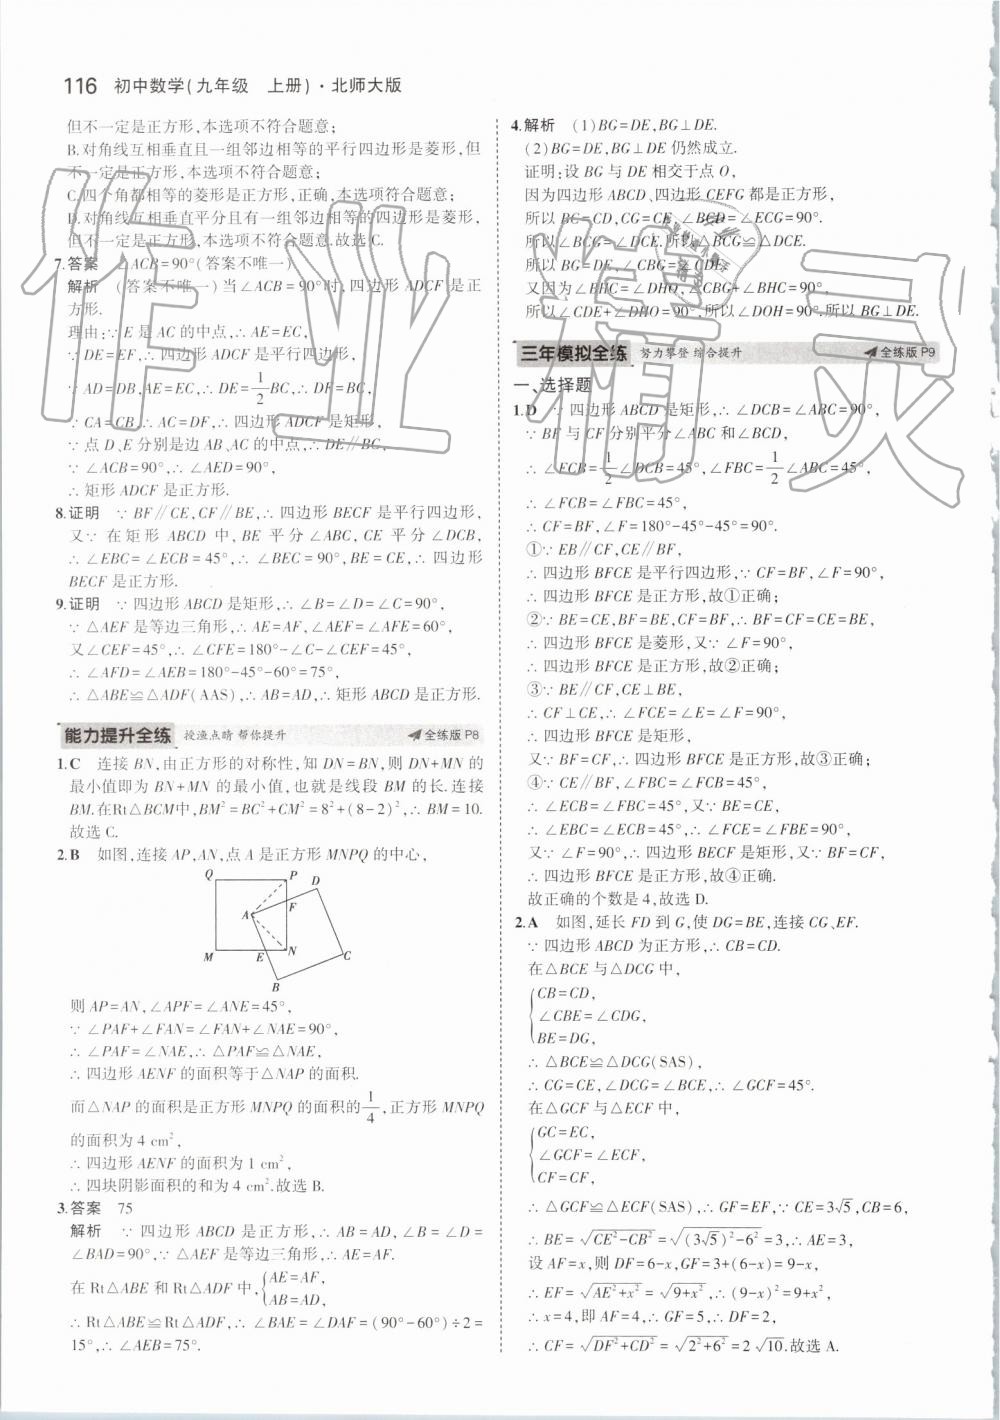 116 初中数学(九年级 上册)·北师大版
但不一定是正方形,本选项不符合题意;
B.对角线互相垂直且一组邻边相等的平行四边形是菱形,但
不一定是正方形,本选项不符合题意;
C.四个角都相等的菱形是正方形,正确,本选项符合题意;
D.对角线互相垂直平分且有一组邻边相等的四边形是菱形,
但不一定是正方形,本选项不符合题意.故选C.
7.答案 ∠ACB=90°(答案不唯一)
解析 (答案不唯一)当∠ACB=90°时,四边形ADCF是正
方形.
理由:∵E是AC的中点,∴AE=EC,
∵DE=EF,∴四边形ADCF是平行四边形,
∵AD=DB,AE=EC,∴DE=1/2BC,∴DF=BC,
∵CA=CB,∴AC=DF,∴四边形ADCF是矩形,
∵点D、E分别是边AB、AC的中点,∴DE∥BC,
∵∠ACB=90°,∴∠AED=90°,
∴矩形ADCF是正方形.
8.证明 ∵BF∥CE,CF∥BE,∴四边形BECF是平行四边形,
又∵在矩形ABCD中,BE平分∠ABC,CE平分∠DCB,
∴∠EBC=∠ECB=45°,∴∠BEC=90°,BE=CE,∴四边形
BECF是正方形.
9.证明 ∵四边形ABCD是矩形,∴∠B=∠D=∠C=90°,
∵△AEF是等边三角形,∴AE=AF,∠AEF=∠AFE=60°,
又∠CEF=45°,∴∠CFE=180°-∠C-∠CEF=45°,
∴∠AFD=∠AEB=180°-45°-60°=75°,
∴△ABE≌△ADF(AAS),∴AB=AD,∴矩形ABCD是正方形.
能力提升全练 授渔点睛 帮你提升 全练版P8
1.C 连接BN,由正方形的对称性,知DN=BN,则DN+MN的
最小值即为BN+MN的最小值,也就是线段BM的长.连接
BM.在Rt△BCM中,BM²=BC²+CM²=8²+(8-2)²,∴BM=10.
故选C.
2.B 如图,连接AP,AN,点A是正方形MNPQ的中心,
Q P D
A F
M E N C
B
则AP=AN,∠APF=∠ANE=45°,
∵∠PAF+∠FAN=∠FAN+∠NAE=90°,
∴∠PAF=∠NAE,∴△PAF≌△NAE,
∴四边形AENF的面积等于△NAP的面积.
而△NAP的面积是正方形MNPQ的面积的1/4,正方形MNPQ
的面积为4 cm²,
∴四边形AENF的面积为1 cm²,
∴四块阴影面积的和为4 cm².故选B.
3.答案 75
解析 ∵四边形ABCD是正方形,∴AB=AD,∠B=∠D=
∠BAD=90°.∵△AEF是等边三角形,∴AE=AF.
在Rt△ABE和Rt△ADF中,{AE=AF,
AB=AD,
∴Rt△ABE≌Rt△ADF,∴∠BAE=∠DAF=(90°-60°)÷2=
15°,∴∠AEB=75°.
4.解析 (1)BG=DE,BG⊥DE.
(2)BG=DE,BG⊥DE仍然成立.
证明:设BG与DE相交于点O,
因为四边形ABCD、四边形CEFG都是正方形,
所以BC=CD,CG=CE,∠BCD=∠ECG=90°.
所以∠BCG=∠DCE.所以△BCG≌△DCE.
所以BG=DE,∠CBG=∠CDE.
又因为∠BHC=∠DHO,∠CBG+∠BHC=90°,
所以∠CDE+∠DHO=90°,所以∠DOH=90°.所以BG⊥DE.
三年模拟全练 努力攀登 综合提升 全练版P9
一、选择题
1.D ∵四边形ABCD是矩形,∴∠DCB=∠ABC=90°,
∵BF与CF分别平分∠ABC和∠BCD,
∴∠FCB=1/2∠DCB=45°,∠FBC=1/2∠ABC=45°,
∴∠FCB=∠FBC=45°,
∴CF=BF,∠F=180°-45°-45°=90°.
①∵EB∥CF,CE∥BF,
∴四边形BFCE是平行四边形,∵CF=BF,∠F=90°,
∴四边形BFCE是正方形,故①正确;
②∵BE=CE,BF=BE,CF=BF,∴BF=CF=CE=BE,
∴四边形BFCE是菱形,又∵∠F=90°,
∴四边形BFCE是正方形,故②正确;
③∵BE∥CF,CE⊥BE,
∴CF⊥CE,∴∠FCE=∠E=∠F=90°,
∴四边形BFCE是矩形,
又∵BF=CF,∴四边形BFCE是正方形,故③正确;
④∵CE∥BF,∴∠FBC=∠ECB=45°,
∴∠ECB=∠FBC=45°,又∵BE=CE,
∴∠EBC=∠ECB=45°,∴∠FCE=∠FBE=90°,
又∵∠F=90°,∴四边形BECF是矩形,又∵BF=CF,
∴四边形BFCE是正方形,故④正确.
故正确的个数是4,故选D.
2.A 如图,延长FD到G,使DG=BE,连接CG、EF.
∵四边形ABCD为正方形,∴CB=CD.
在△BCE与△DCG中,
{CB=CD,
∠CBE=∠CDG,
BE=DG,
∴△BCE≌△DCG(SAS),
∴CG=CE,∠DCG=∠BCE,∴∠GCF=45°.
在△GCF与△ECF中,
{GC=EC,
∠GCF=∠ECF,
CF=CF,
∴△GCF≌△ECF(SAS),∴GF=EF,∵CE=3√5,CB=6,
∴BE=√(CE²-CB²)=√((3√5)²-6²)=3,∴AE=3,
设AF=x,则DF=6-x,GF=3+(6-x)=9-x,
∴EF=√(AE²+x²)=√(9+x²),∴(9-x)²=9+x²,
∴x=4,即AF=4,∴GF=5,∴DF=2,
∴CF=√(DF²+CD²)=√(2²+6²)=2√10.故选A.
作业精灵